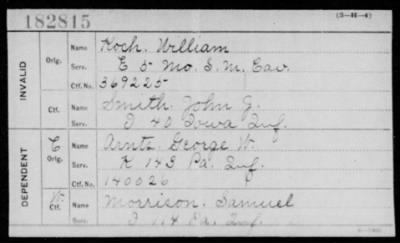 182815
(3-H-4)
INVALID
Orig.
Name Koch. William
Serv. E 5 Mo. S. M. Cav.
Ctf. No. 369225
Ctf.
Name Smith. John J.
I 40 Iowa Inf.
DEPENDENT
C
Orig.
Name Arntz. George W.
Serv. K 143 Pa. Inf.
Ctf. No. 140026
W.
Ctf.
Name Morrison. Samuel
Serv. I 114 Pa. Inf.